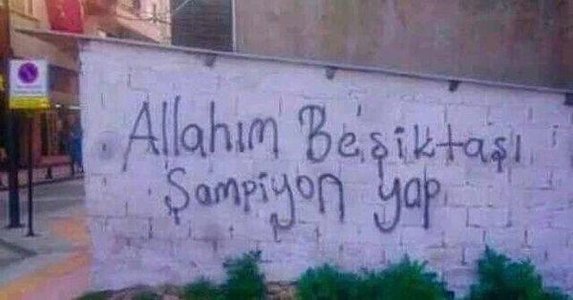 Allahım Beşiktaşı
Şampiyon yap